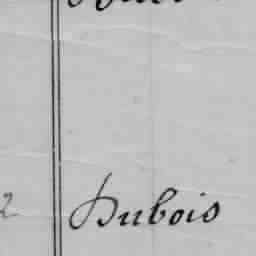 2 Dubois